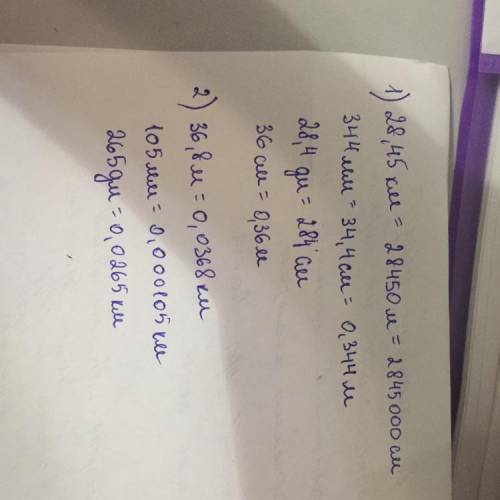 1) 28,45 км = 28450 м = 2845000 см
344 мм = 34,4 см = 0,344 м
28,4 дм = 284 см
36 см = 0,36 м
2) 36,8 м = 0,0368 км
105 мм = 0,000105 км
265 дм = 0,0265 км